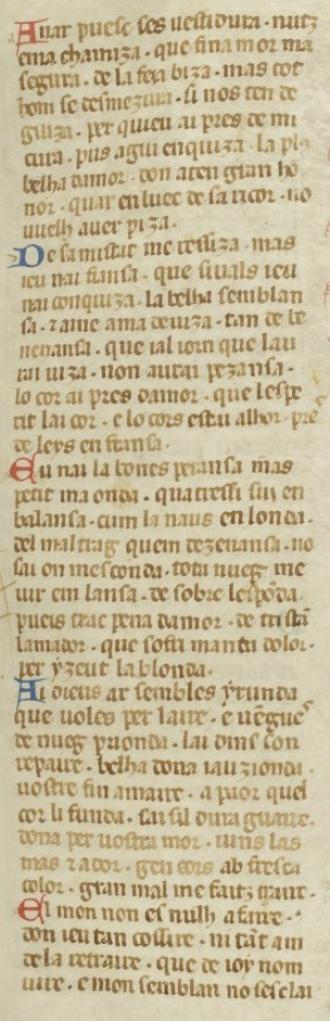 Anar puesc ses uestidura . nutz
en ma chamiza . que fina mor ma
segura . de la freia biza . mas tot
hom se desmezura . si nos ten de
guiza . per quieu ai pres de mi
cura . pus agui enquiza . la pl
belha damor . don aten gran ho
nor . quar en luec de sa ricor . no
uuelh auer piza .
De samistat me resiza . mas
ieu nai fiansa . que siuals ieu
nai conquiza . la belha semblan
sa . ⁊ aine ama deuiza . tan de be
nenansa . que ial iorn que lau
rai uiza . non aurai pezansa .
lo cor ai pres damor . que lespe
rit lai cor . e lo cors estai alhor . pres
de leys en fransa .
Eu nai la bones peransa mas
petit ma onda . quatressi suy en
balansa . cum la naus en londa .
del maltrag quem dezenansa . no
sai on mesconda . tota nueg me
uir em lansa . de sobre lesponda .
pueis trac pena damor . de tristā
lamador . que sofri manta dolor .
per yzeut la blonda .
Ai dieus ar sembles yrunda
que uoles per laire . e uēgues
de nueg prionda . lai dins son
repaire . belha dona iauzionda .
uostre fin amaire . a paor quel
cor li funda . sai sil dura guaire .
dona per uostra mor . iuns las
mas ⁊ ador . gen cors ab fresca
color . gran mal me faitz traire .
El mon non es nulh afaire .
don ieu tan cossire . ni tāt am
de la retraire . que de ioy nom
uire . e mon semblan no sesclai